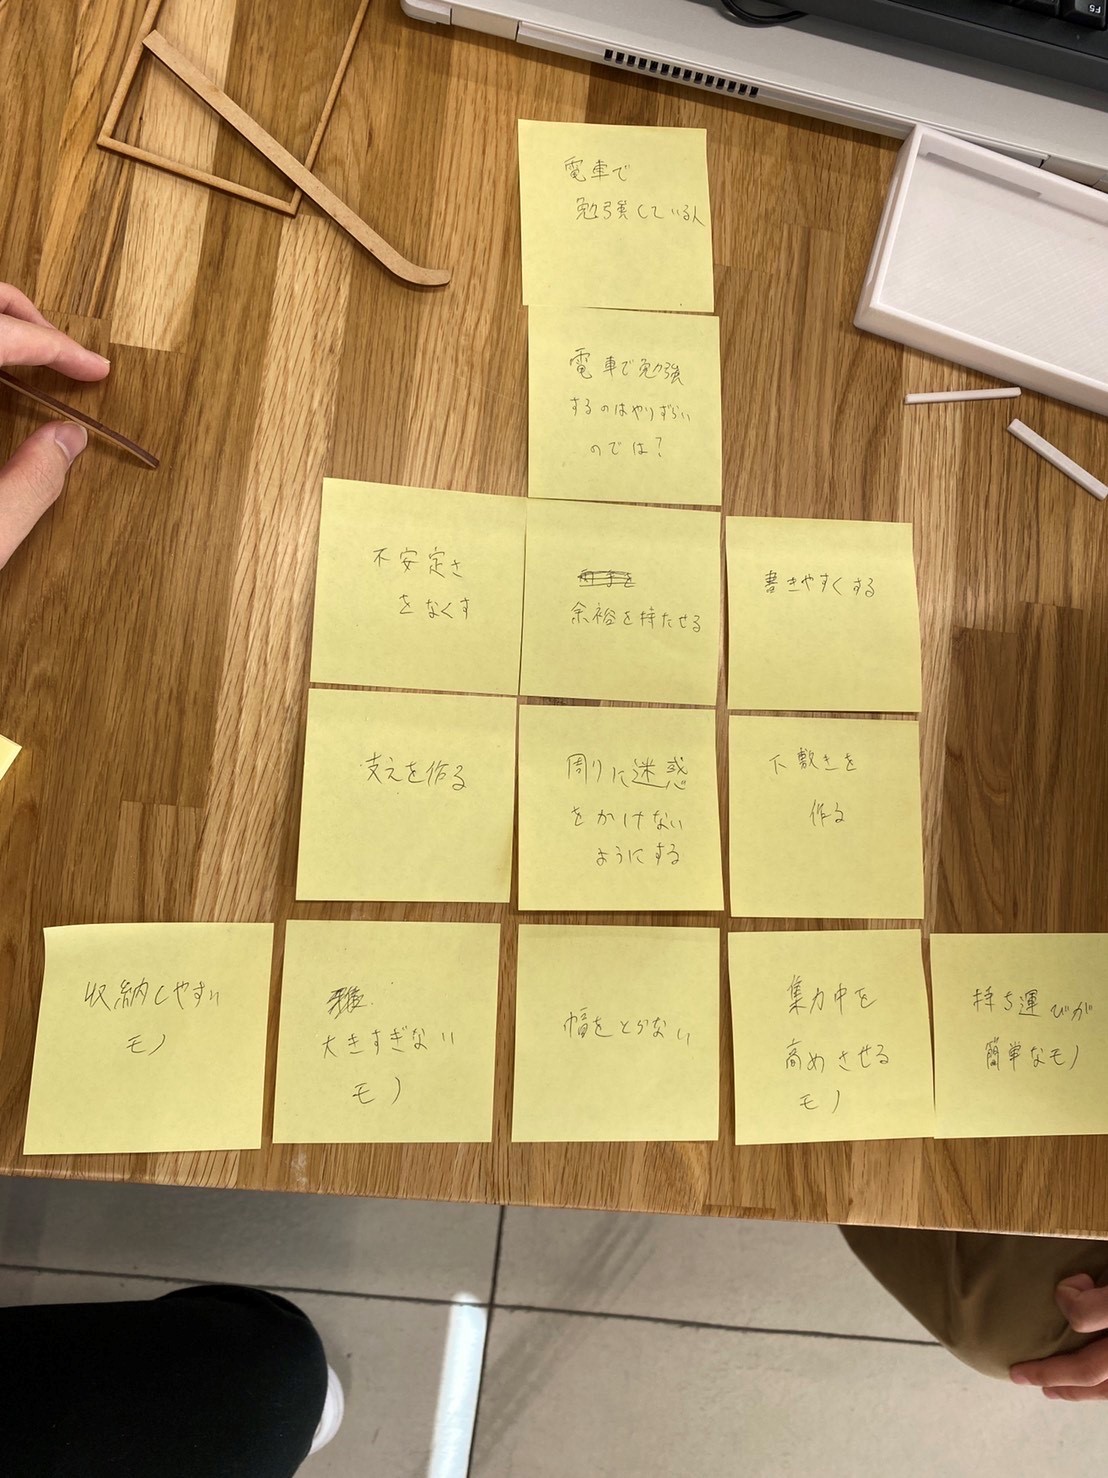 電車で
勉強している人
電車で勉強
するのはやりずらい
のでは?
不安定さ
をなくす
余裕を持たせる
書きやすくする
支えを作る
周りに迷惑
をかけない
ようにする
下敷きを
作る
収納しやすい
モノ
大きすぎない
モノ
幅をとらない
集力中を
高めさせる
モノ
持ち運びが
簡単なモノ
F5